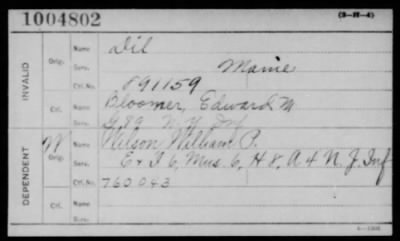 1004802
(3-IV-4)
INVALID
Orig.
Name Dil
Serv. Maine
Ctf. No. 891159
Ctf.
Name Bloomer, Edward M
Serv. G 89 N. Y. Inf
DEPENDENT
M
Orig.
Name Wilson William P.
Serv. Ex I 6, Mus 6, H 8, A 4 N. J. Inf
Ctf. No. 760043
Ctf.
Name
Serv.